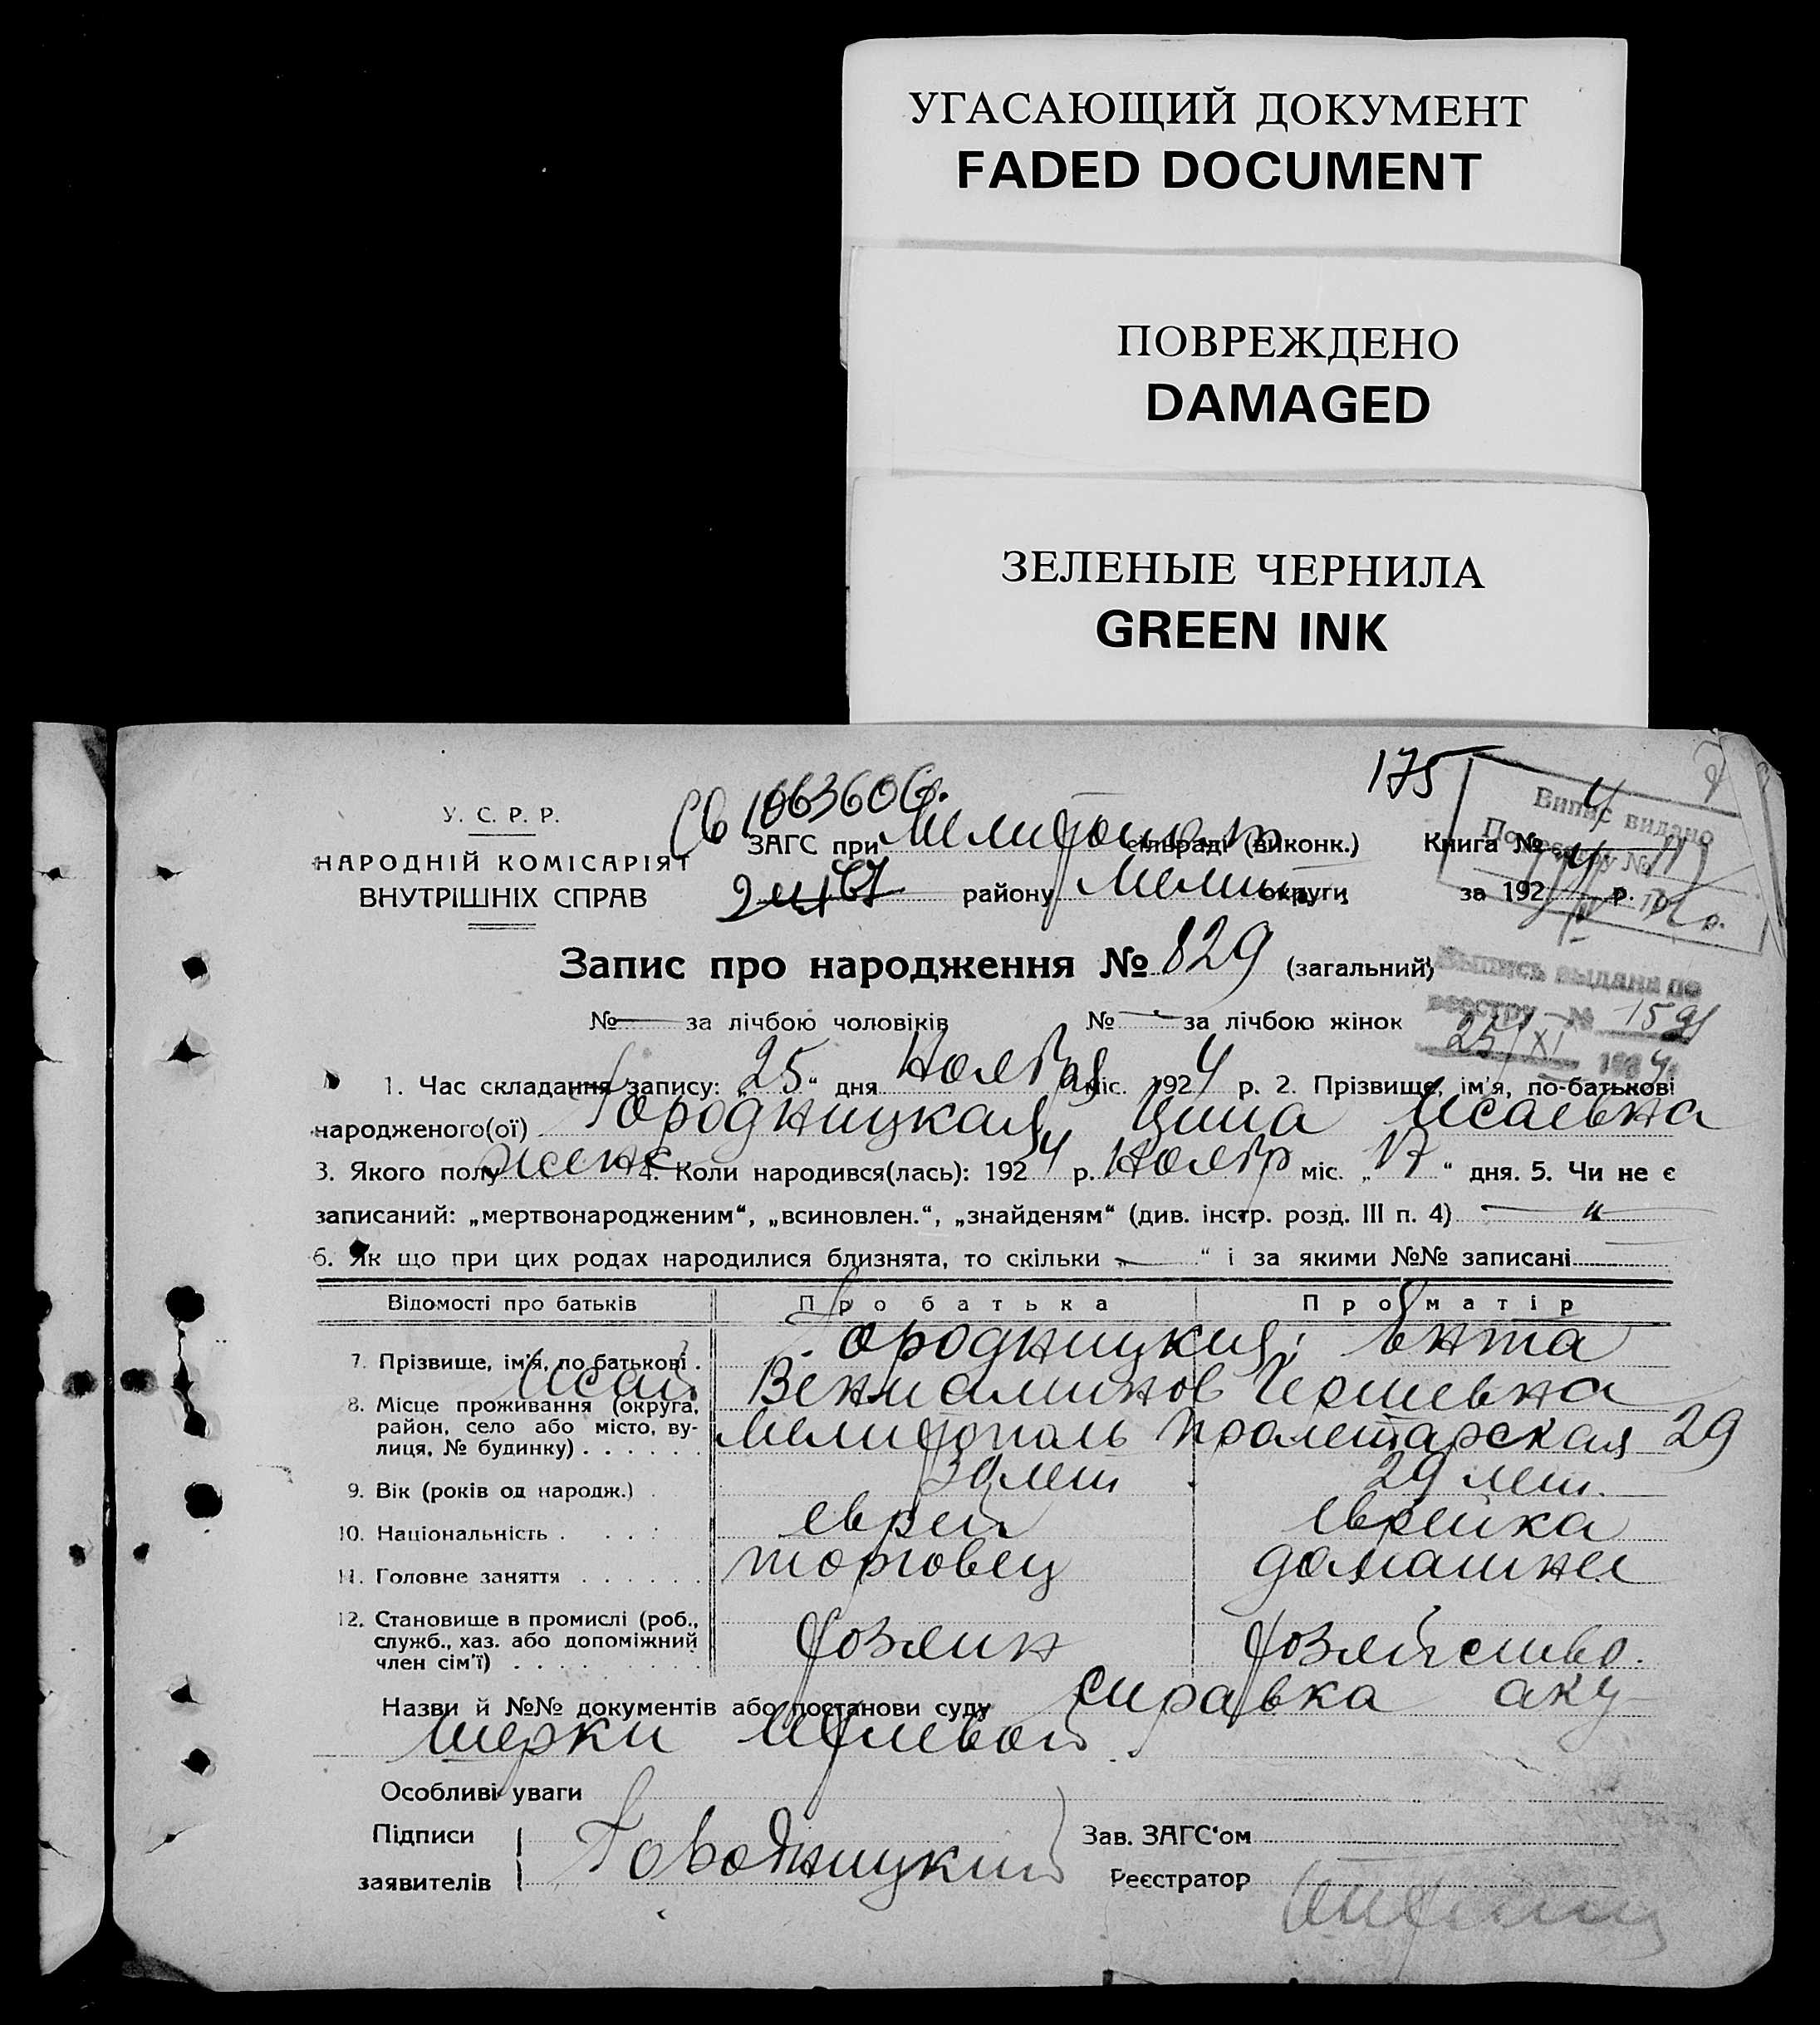 УГАСАЮЩИЙ ДОКУМЕНТ
FADED DOCUMENT
ПОВРЕЖДЕНО
DAMAGED
ЗЕЛЕНЫЕ ЧЕРНИЛА
GREEN INK
175
У. С. Р. Р.
НАРОДНІЙ КОМІСАРІЯТ
ВНУТРІШНІХ СПРАВ
ЗАГС при Мелитопол сільраді (виконк.) Книга №
району Мелит. округи за 192 4 р.
Випис видано
По реєстру №
Запис про народження № 829 (загальний)
Выпись выдана по
реестру № 1591
25/XI 1934
№ — за лічбою чоловіків № — за лічбою жінок
1. Час складання запису: „25“ дня Ноября міс. 1924 р. 2. Прізвище, ім'я, по-батькові
народженого(ої) Городницкая Циша Исаевна
3. Якого полу женс 4. Коли народився(лась): 1924 р. Ноябр міс. „17“ дня. 5. Чи не є
записаний: „мертвонародженим“, „всиновлен.“, „знайденям“ (див. інстр. розд. III п. 4) — „
6. Як що при цих родах народилися близнята, то скільки „—“ і за якими №№ записані
Відомості про батьків Про батька Про матір
7. Прізвище, ім'я, по батькові . Городницкия: Ента
Исай Вениаминов Гершевна
8. Місце проживання (округа,
район, село або місто, ву-
лиця, № будинку) . . . . . . Мелитополь Пролетарская 29
9. Вік (років од народж.) . 30 лет 29 лет.
10. Національність . . . : еврей еврейка
11. Головне заняття . . . . . . торговец домашнее
12. Становище в промислі (роб.,
служб., хаз. або допоміжний
член сім'ї) . . . . . . . . . хозяин хозяйство.
Назви й №№ документів або постанови суду справка аку-
шерки
Особливі уваги
Підписи
заявителів Городницкий
Зав. ЗАГС'ом
Реєстратор